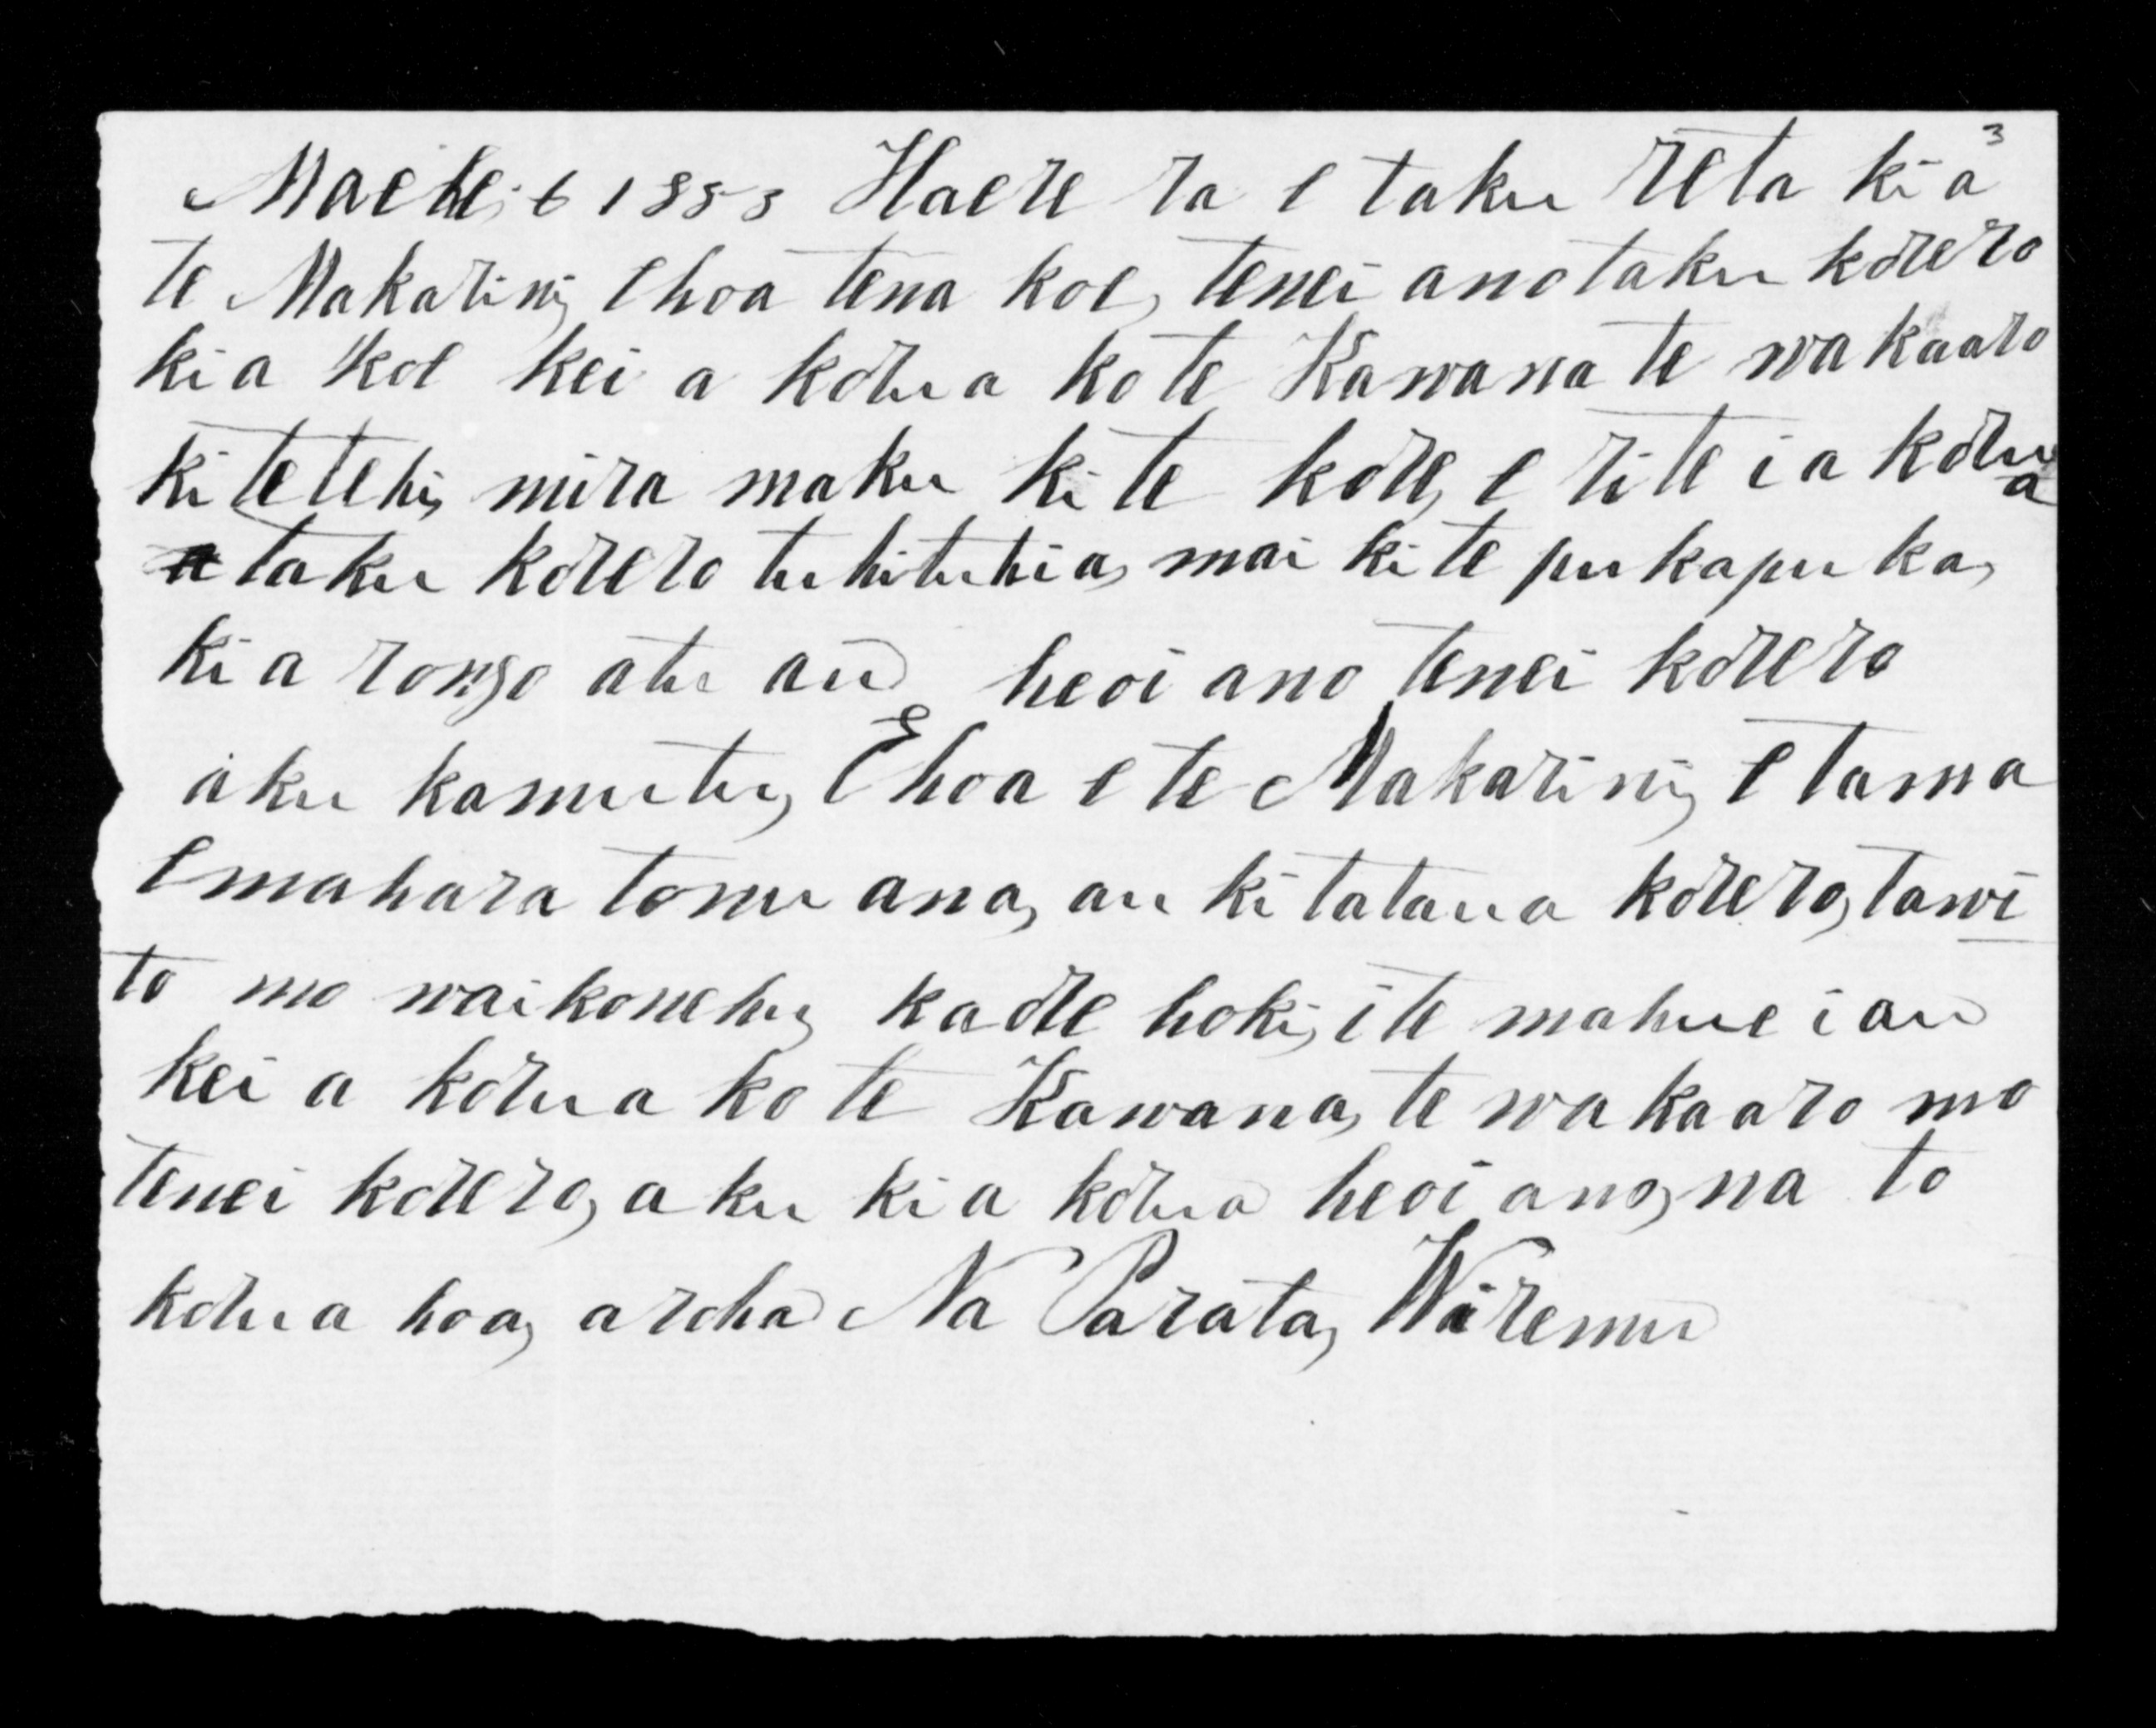 3
Maehe, 6 1853 Haere ra e taku reta kia
te Makarini, Ehoa tena koe, tenei ano taku korero
kia koe kei a korua ko te Kawana te wakaaro
ki tetehi, mira maku ki te kore, e rite i a korua
taku korero tuhituhia, mai ki te pukapuka,
kia rongo atu au heoi ano tenei korero
aku kamutu, Ehoa e te Makarini, E tama
E mahara tonu ana, au ki ta taua korero, tawi
to mo waikonehu, kaore hoki, i te mahue i au
kei a korua ko te Kawana, te wakaaro mo
tenei korero, aku kia korua heoi ano, na to
korua hoa, aroha Na Parata, Wiremu